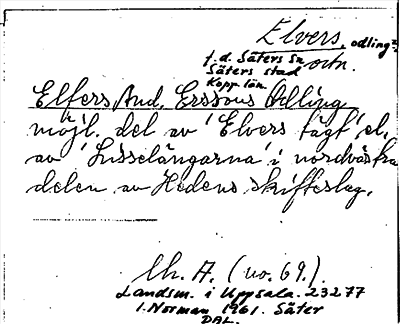 Elvers, odling
f.d. Säters sn ödn.
Säters stad
Kopp. län.
Elfers And. Erssons Odling
möjl. del av 'Elvers tägt' el.
av 'Lisselängarna' i nordvästra
delen av Hedens skifteslag.
lh. A. (no. 69.).
Landsm. i Uppsala. 23277
I. Norman 1961. Säter
DAL.